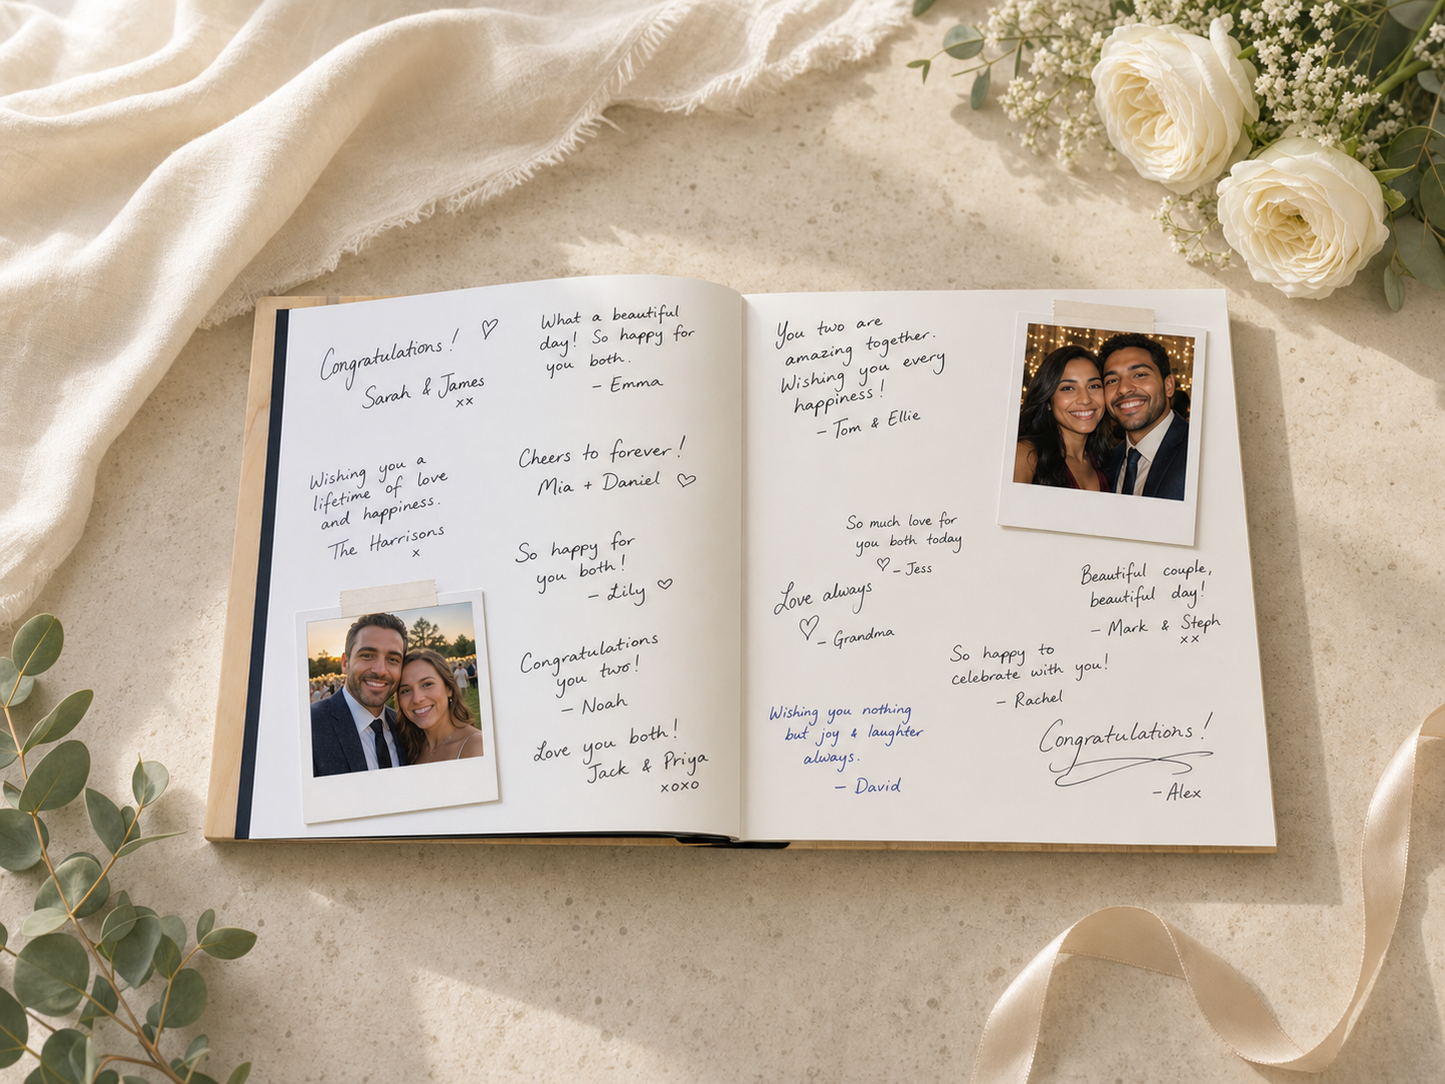 Congratulations!
Sarah & James
xx
Wishing you a
lifetime of love
and happiness.
The Harrisons
x
What a beautiful
day! So happy for
you both.
– Emma
Cheers to forever!
Mia + Daniel
So happy for
you both!
– Lily
Congratulations
you two!
– Noah
Love you both!
Jack & Priya
xoxo
You two are
amazing together.
Wishing you every
happiness!
– Tom & Ellie
So much love for
you both today
– Jess
Love always
– Grandma
Beautiful couple,
beautiful day!
– Mark & Steph
xx
So happy to
celebrate with you!
– Rachel
Wishing you nothing
but joy & laughter
always.
– David
Congratulations!
– Alex